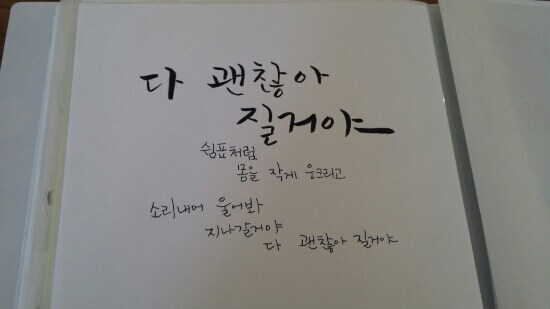 다 괜찮아
질거야
쉼표처럼
몸을 작게 웅크리고
소리내어 울어봐
지나갈거야
다 괜찮아 질거야